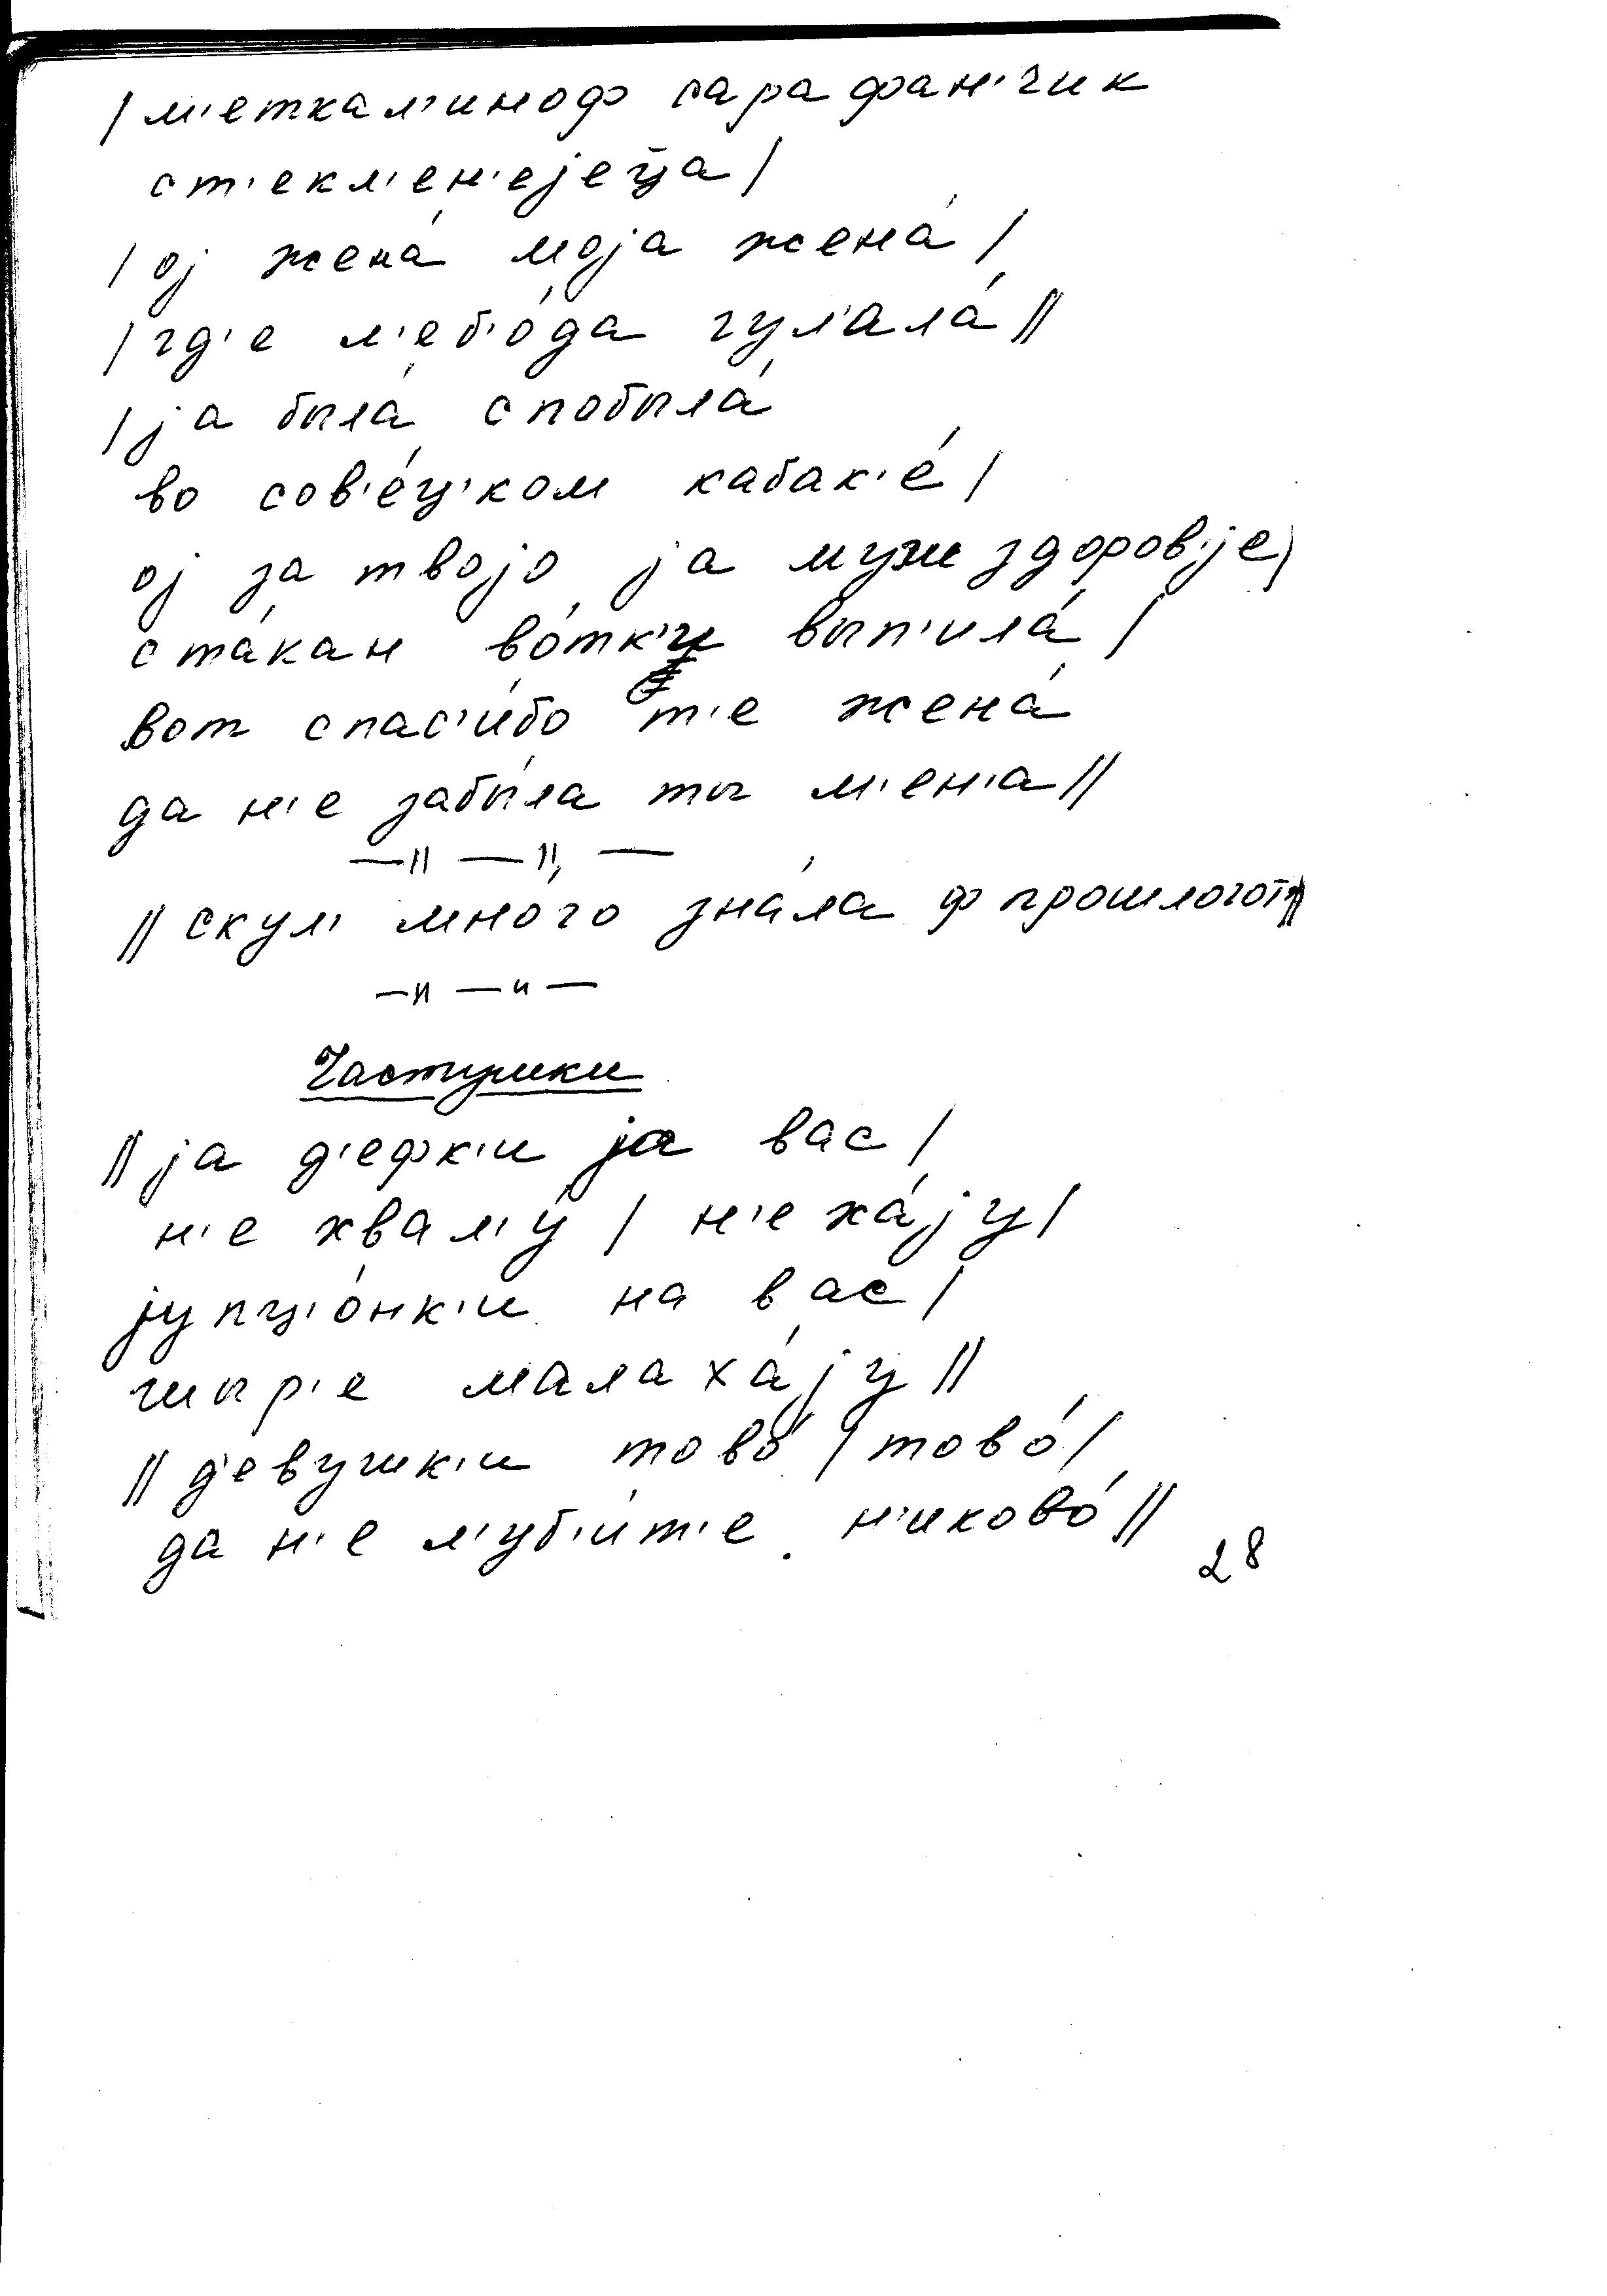 | м'еткал'иноф сарафан'чик
ст'екл'ен'ејец̄а |
| ој жена́ моја жена́ |
| гд'е л'еб'о́да гул'ала́ ||
| ја была́ спобыла́
во сов'е́ц'ком кабак'е́ |
ој за твојо ја муж здоров'је |
ста́кан во́тк'и вып'ила́ |
вот спас'и́бо т'е жена́
да н'е забы́ла ты м'ен'а ||
—||—||—
|| скул' мно́го зна́ла ф прошлогот ||
—и—и—
Частушки
|| ја д'ефк'и ја вас |
н'е хвал'у́ | н'е ха́ју |
јупц'о́нк'и на вас |
шыр'е малаха́ју ||
|| д'евушк'и тово́ | тово́ |
да н'е л'уб'и́т'е н'иково́ ||
28